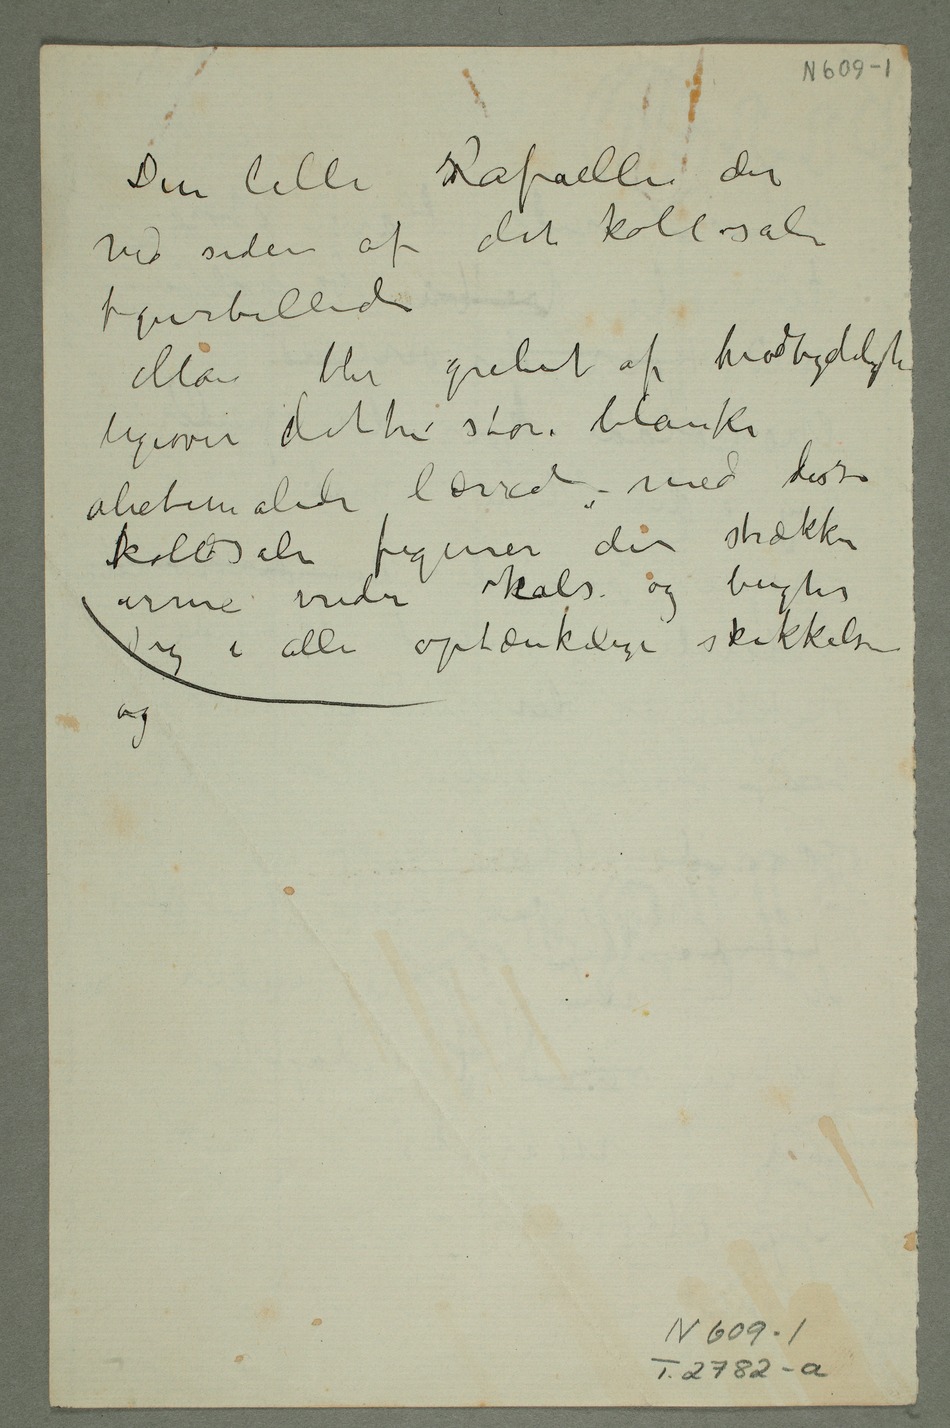 N609-1
Den lille Rafaelli der
ved siden af det kollosale
figurbillede
Man blir grebet af modbydeligh
ligeover dette store blanke
oliebemalede lærred – med disse
kollosale figurer der strækker
arme vrider hals og bugter
sig i alle optænkelige skikkelser
og
N 609-1
T. 2782-a